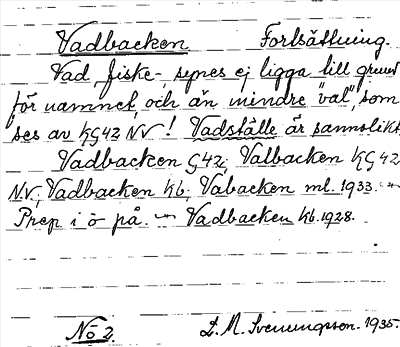 Vadbacken Fortsättning.
Vad, fiske-, synes ej ligga till grund
för namnet, och än mindre "val", som
ses av KG42 NV! Vadställe är sannolikt.
Vadbacken G42, Valbacken KG42
NV, Vadbacken Kb, Vabacken ml. 1933. -
Prep i ö på. - Vadbacken Kb. 1928.
No 2. L. M. Svenungsson. 1935.